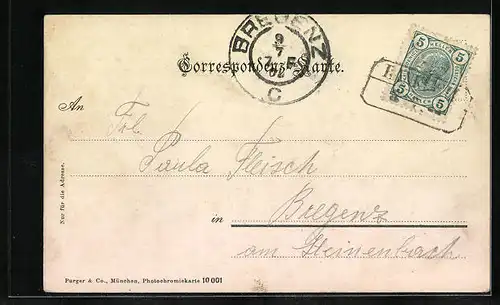 BREGENZ
9
7
02
C
Correspondenz-Karte.
5 HELLER 5
5 5
An
Frl.
Paula Fleisch
in
Bregenz
am Steinenbach
Nur für die Adresse.
Purger & Co., München, Photochromiekarte 10 001